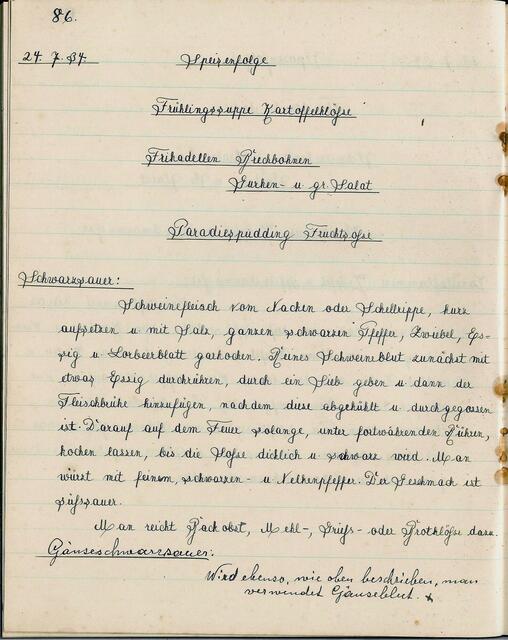 86.
24. 7. 34. Speisenfolge
Frühlingssuppe Kartoffelklöße
Frikadellen Brechbohnen
Gurken- u. gr. Salat
Paradiespudding Fruchtsoße
Schwarzsauer:
Schweinefleisch vom Nacken oder Schellrippe, kurz
aufsetzen u. mit Salz, ganzen schwarzen Pfeffer, Zwiebel, Es-
sig u. Lorbeerblatt garkochen. Reines Schweineblut zunächst mit
etwas Essig durchrühren, durch ein Sieb geben u. dann der
Fleischbrühe hinzufügen, nachdem diese abgekühlt u. durchgegossen
ist. Darauf auf dem Feuer solange, unter fortwährenden Rühren,
kochen lassen, bis die Soße dicklich u. schwarz wird. Man
würzt mit feinem, schwarzen- u. Nelkenpfeffer. Der Geschmack ist
süßsauer.
Man reicht Backobst, Mehl-, Grieß- oder Brotklöße dazu.
Gänseschwarzsauer:
Wird ebenso, wie oben beschrieben, man
verwendet Gänseblut.